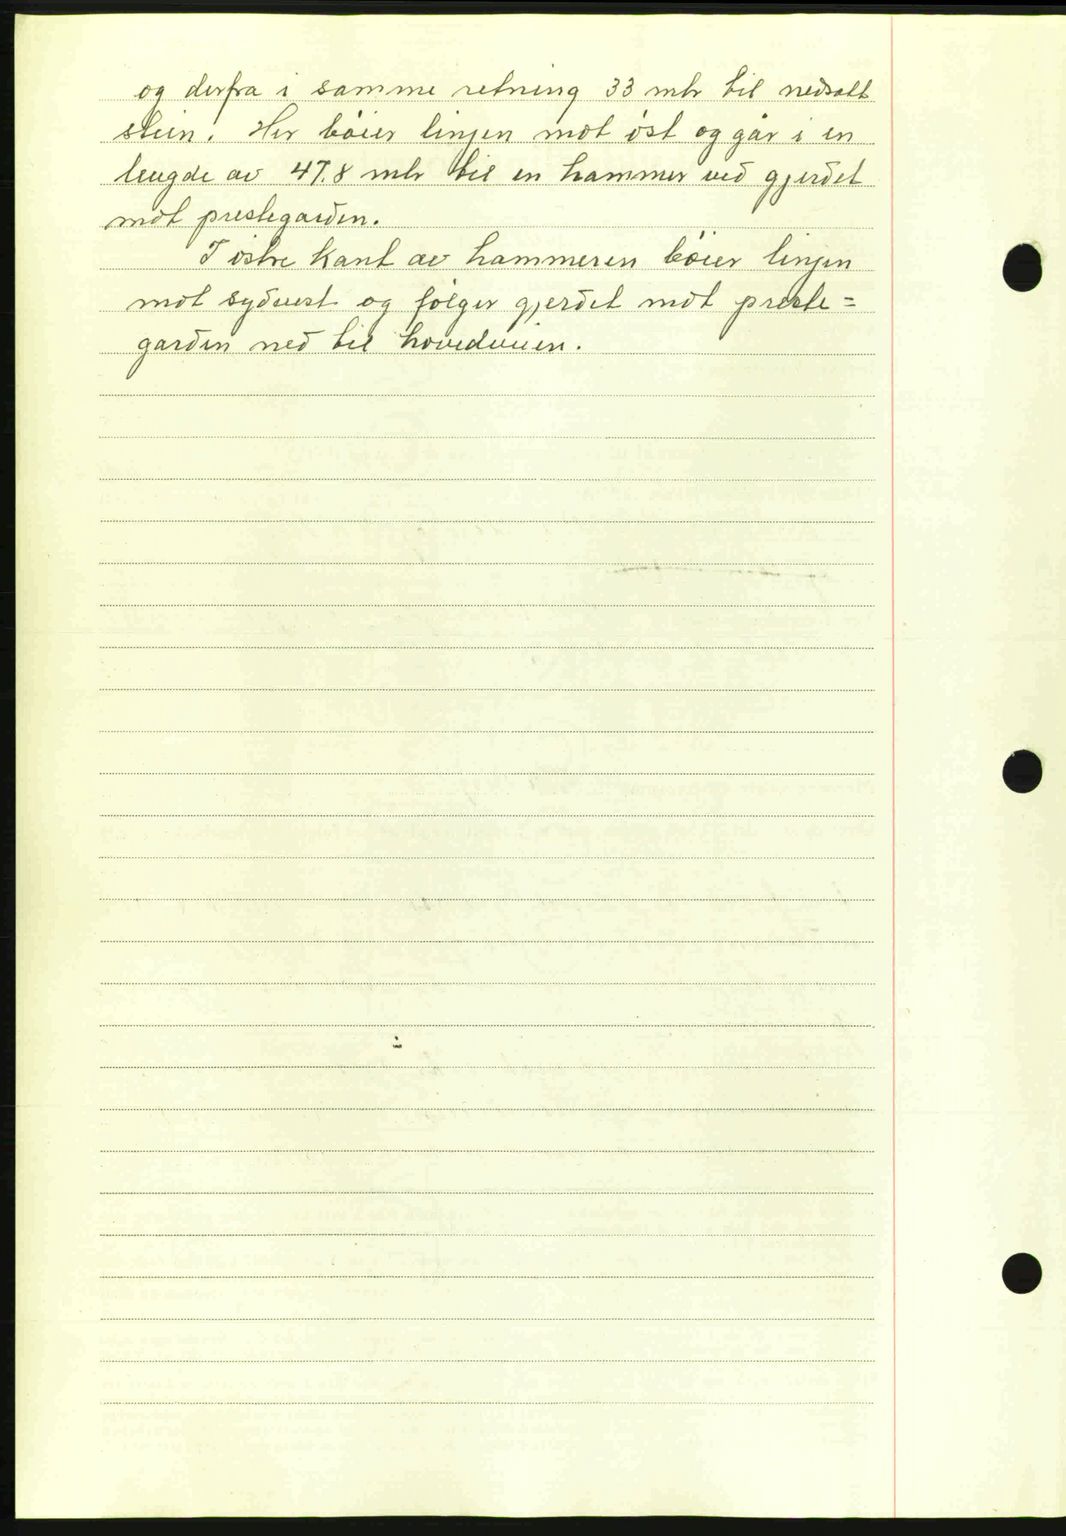 og derfra i samme retning 33 mtr til nedsatt
stein. Her bøier linjen mot øst og går i en
lengde av 47.8 mtr til en hammer ved gjerdet
mot prestegarden.
I østre kant av hammeren bøier linjen
mot sydvest og følger gjerdet mot preste=
garden ned til hovedveien.